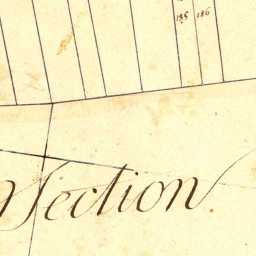 185 186
Section